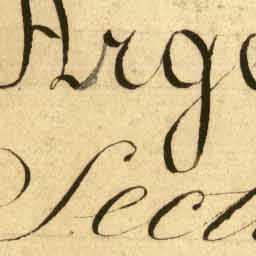 Argo
Sect